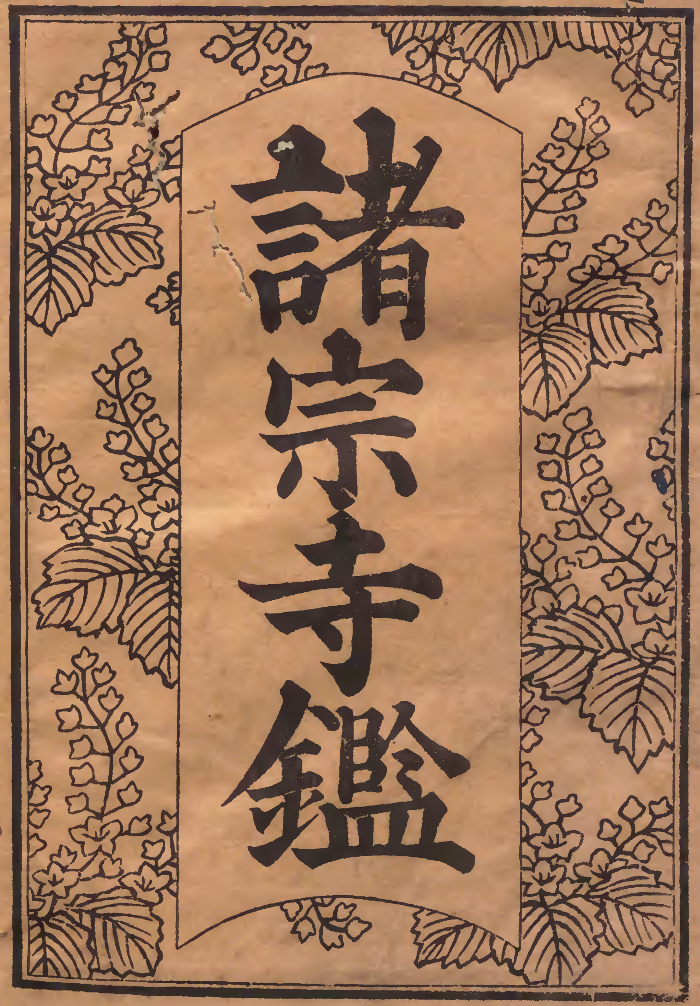 諸宗寺鑑